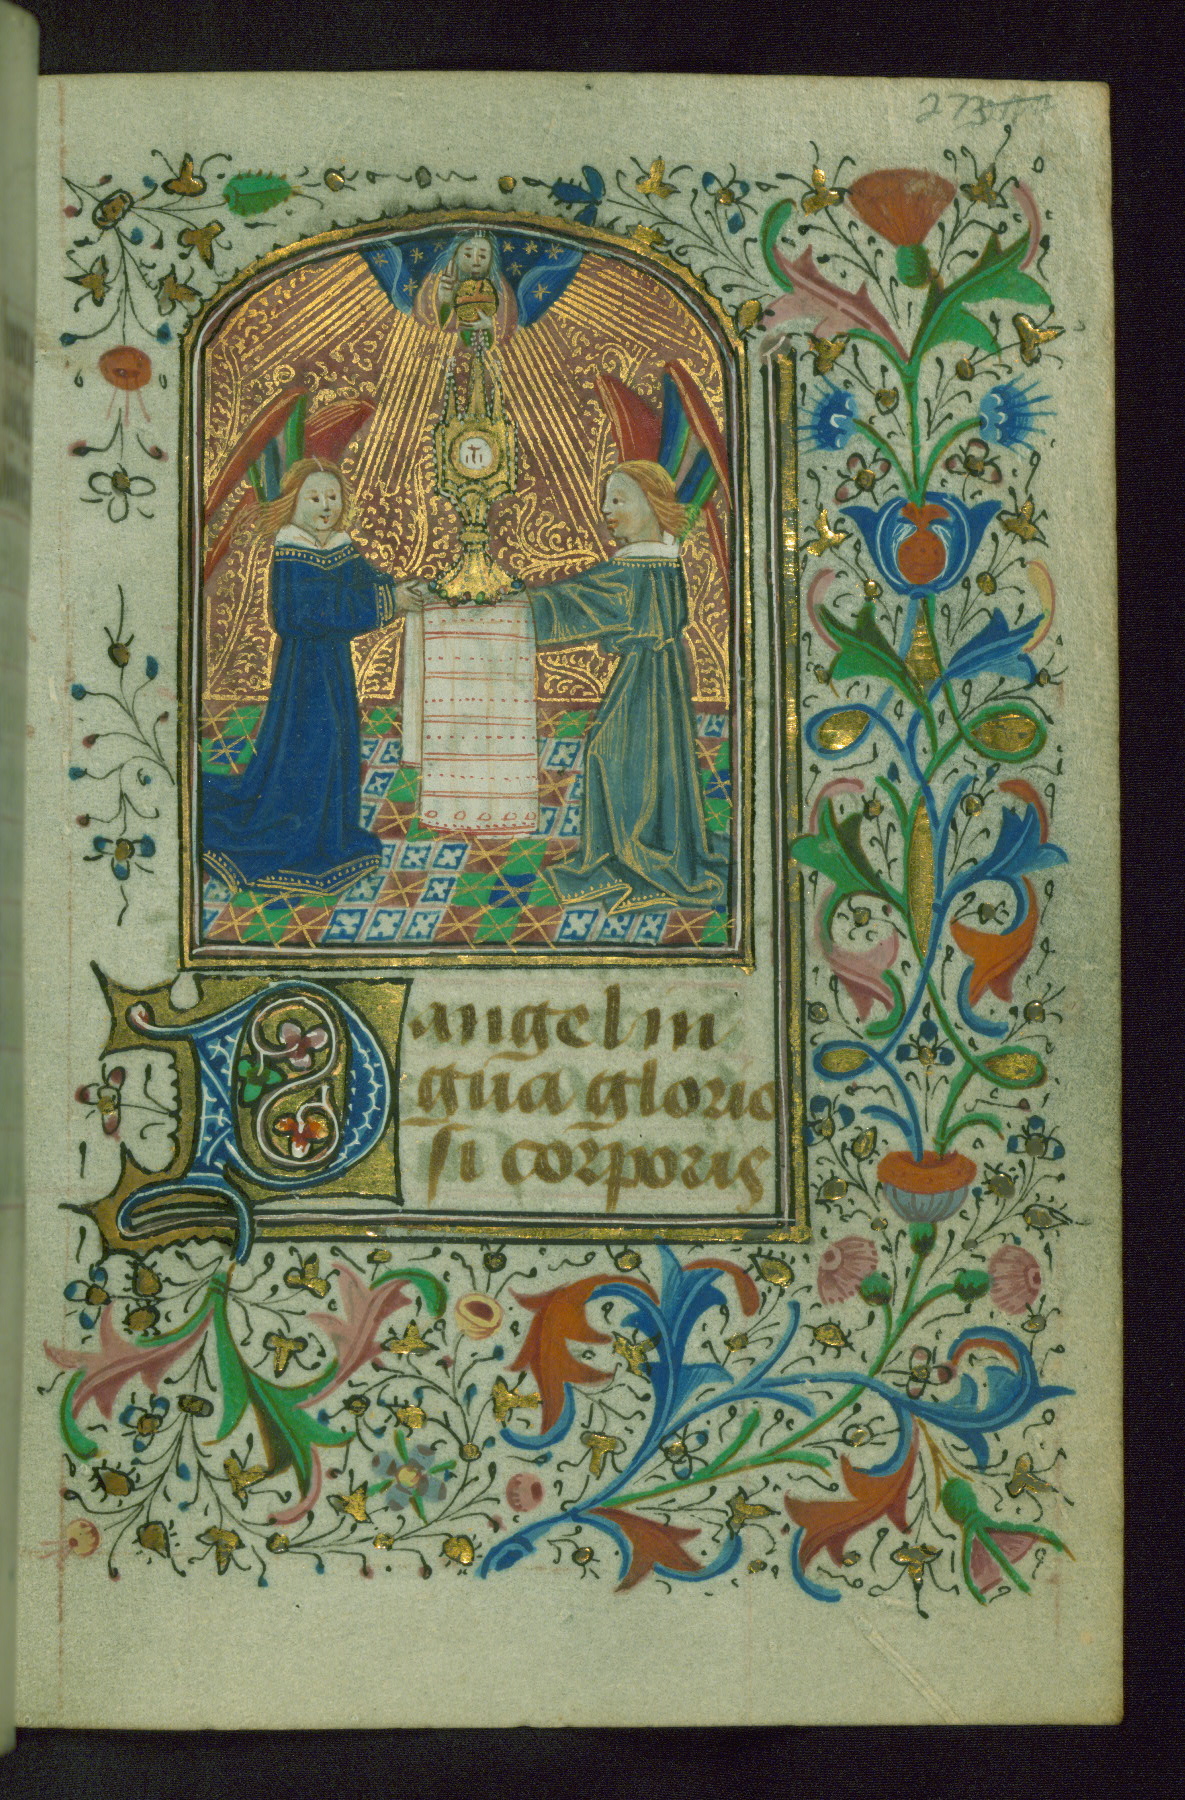 273
Pangelin
gua glorio
si corporis